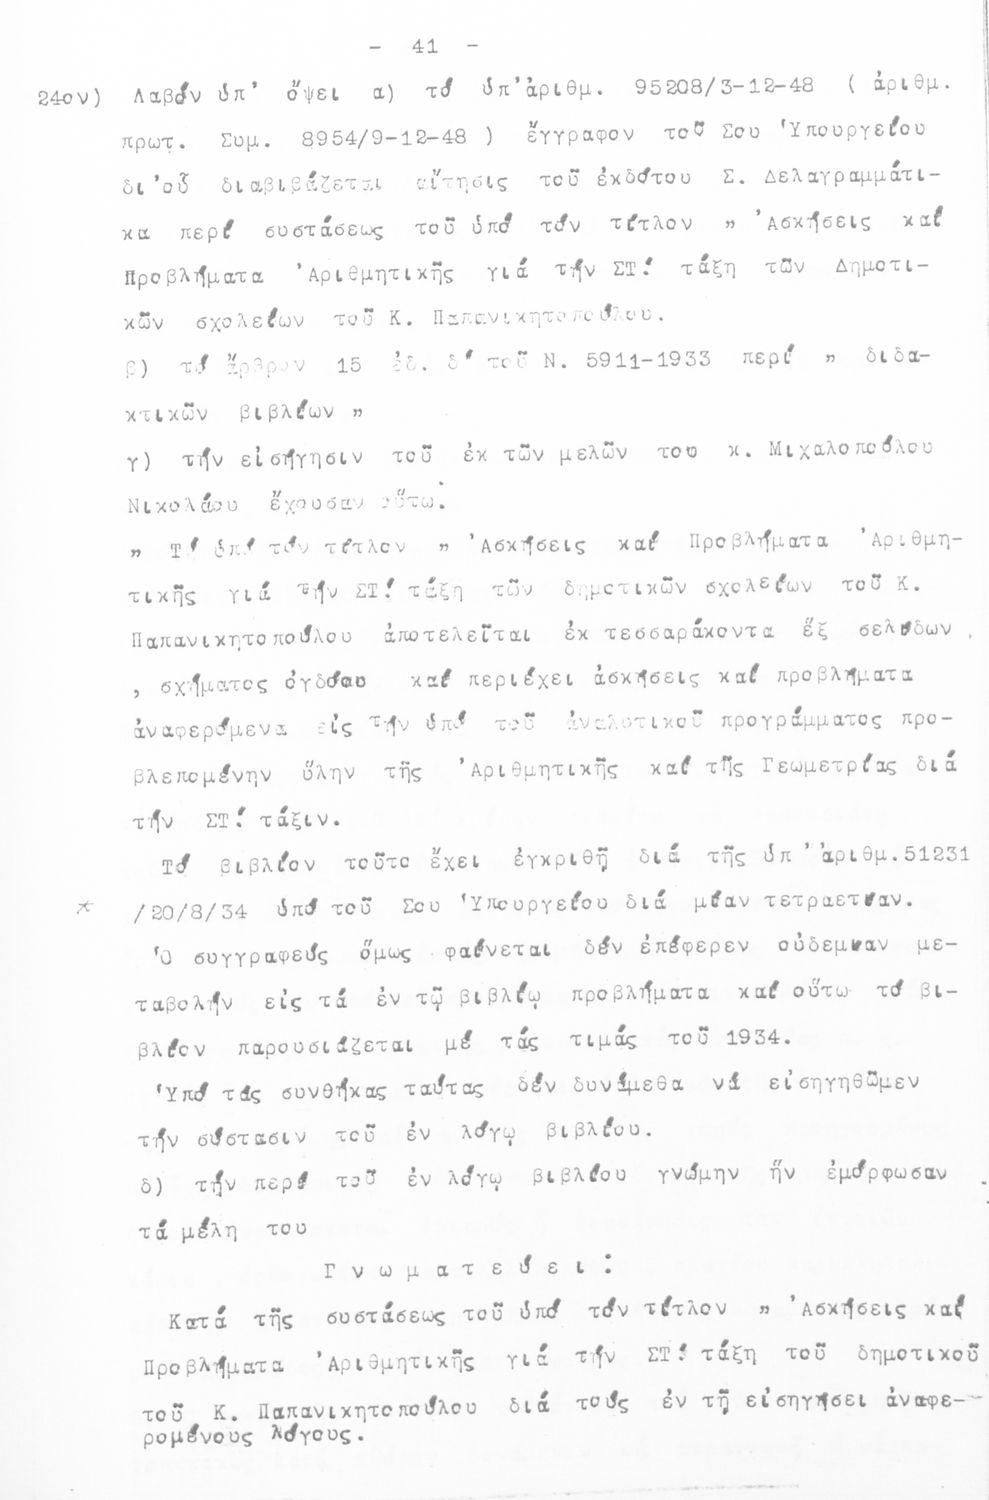 - 41 -
24ον) Λαβόν ὑπ' ὄψει α) τό ὑπ'ἀριθμ. 95208/3-12-48 ( ἀριθμ.
πρωτ. Συμ. 8954/9-12-48 ) ἔγγραφον τοῦ Σου Ὑπουργείου
δι'οὗ διαβιβάζεται αἴτησις τοῦ ἐκδότου Σ. Δελαγραμμάτι-
κα περί συστάσεως τοῦ ὑπό τόν τίτλον " Ἀσκήσεις καί
Προβλήματα Ἀριθμητικῆς γιά τήν ΣΤ! τάξη τῶν Δημοτι-
κῶν σχολείων τοῦ Κ. Παπανικητοπούλου.
β) τό ἄρθρον 15 ἐδ. δ' τοῦ Ν. 5911-1933 περί " διδα-
κτικῶν βιβλίων "
γ) τήν εἰσήγησιν τοῦ ἐκ τῶν μελῶν του κ. Μιχαλοπούλου
Νικολάου ἔχουσαν οὕτω:
" Τό ὑπό τόν τίτλον " Ἀσκήσεις καί Προβλήματα Ἀριθμη-
τικῆς γιά τήν ΣΤ! τάξη τῶν δημοτικῶν σχολείων τοῦ Κ.
Παπανικητοπούλου ἀποτελεῖται ἐκ τεσσαράκοντα ἕξ σελίδων ,
, σχήματος ὀγδόου καί περιέχει ἀσκήσεις καί προβλήματα
ἀναφερόμενα εἰς τήν ὑπό τοῦ ἀναλυτικοῦ προγράμματος προ-
βλεπομένην ὕλην τῆς Ἀριθμητικῆς καί τῆς Γεωμετρίας διά
τήν ΣΤ! τάξιν.
Τό βιβλίον τοῦτο ἔχει ἐγκριθῆ διά τῆς ὑπ' ἀριθμ.51231
/20/8/34 ὑπό τοῦ Σου Ὑπουργείου διά μίαν τετραετίαν.
Ὁ συγγραφεύς ὅμως φαίνεται δέν ἐπέφερεν οὐδεμίαν με-
ταβολήν εἰς τά ἐν τῷ βιβλίῳ προβλήματα καί οὕτω τό βι-
βλίον παρουσιάζεται μέ τάς τιμάς τοῦ 1934.
Ὑπό τάς συνθήκας ταύτας δέν δυνάμεθα νά εἰσηγηθῶμεν
τήν σύστασιν τοῦ ἐν λόγῳ βιβλίου.
δ) τήν περί τοῦ ἐν λόγῳ βιβλίου γνώμην ἥν ἐμόρφωσαν
τά μέλη του
Γ ν ω μ α τ ε ύ ε ι :
Κατά τῆς συστάσεως τοῦ ὑπό τόν τίτλον " Ἀσκήσεις καί
Προβλήματα Ἀριθμητικῆς γιά τήν ΣΤ! τάξη τοῦ δημοτικοῦ
τοῦ Κ. Παπανικητοπούλου διά τούς ἐν τῇ εἰσηγήσει ἀναφε-
ρομένους λόγους.